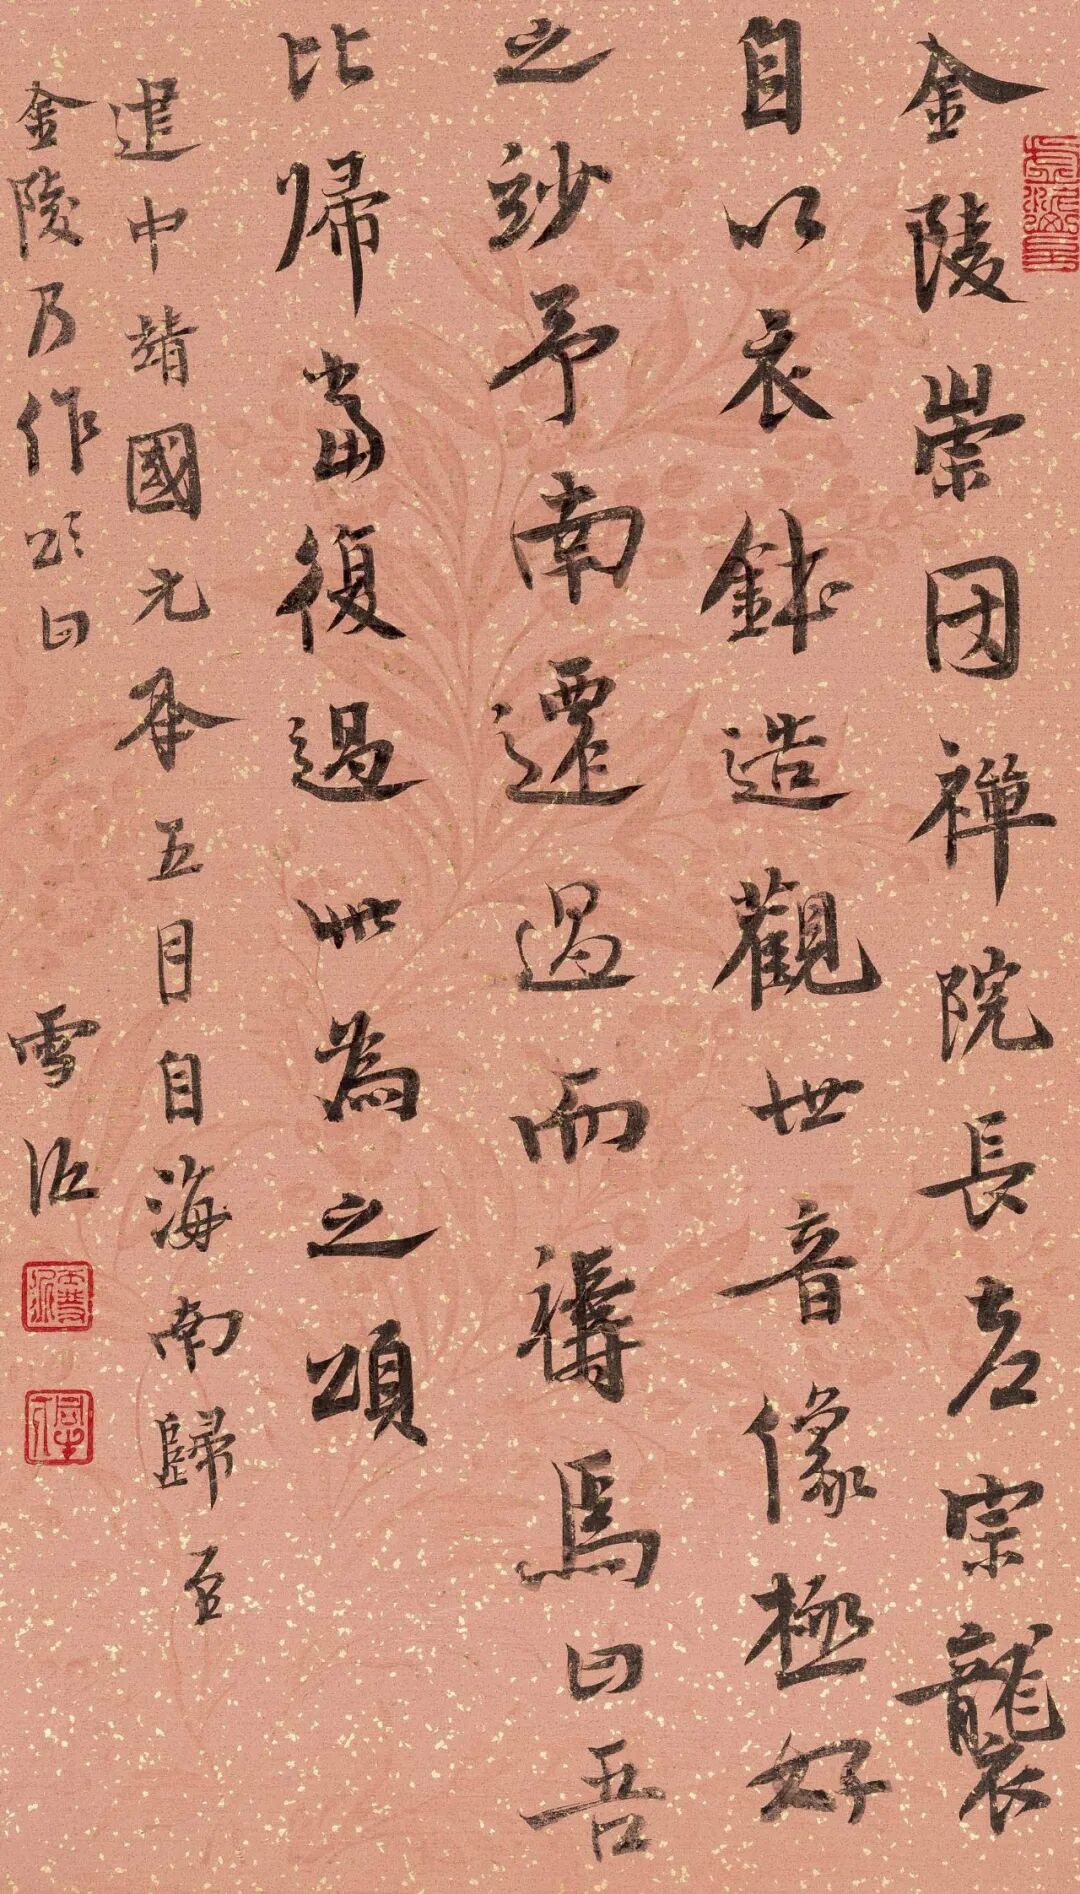 金陵崇因禪院長老宗襲
自以衣鉢造觀世音像極好
之妙予南遷過而禱焉曰吾
比歸當復過此為之頌
建中靖國元年五月自海南歸至
金陵乃作頌曰 雪江